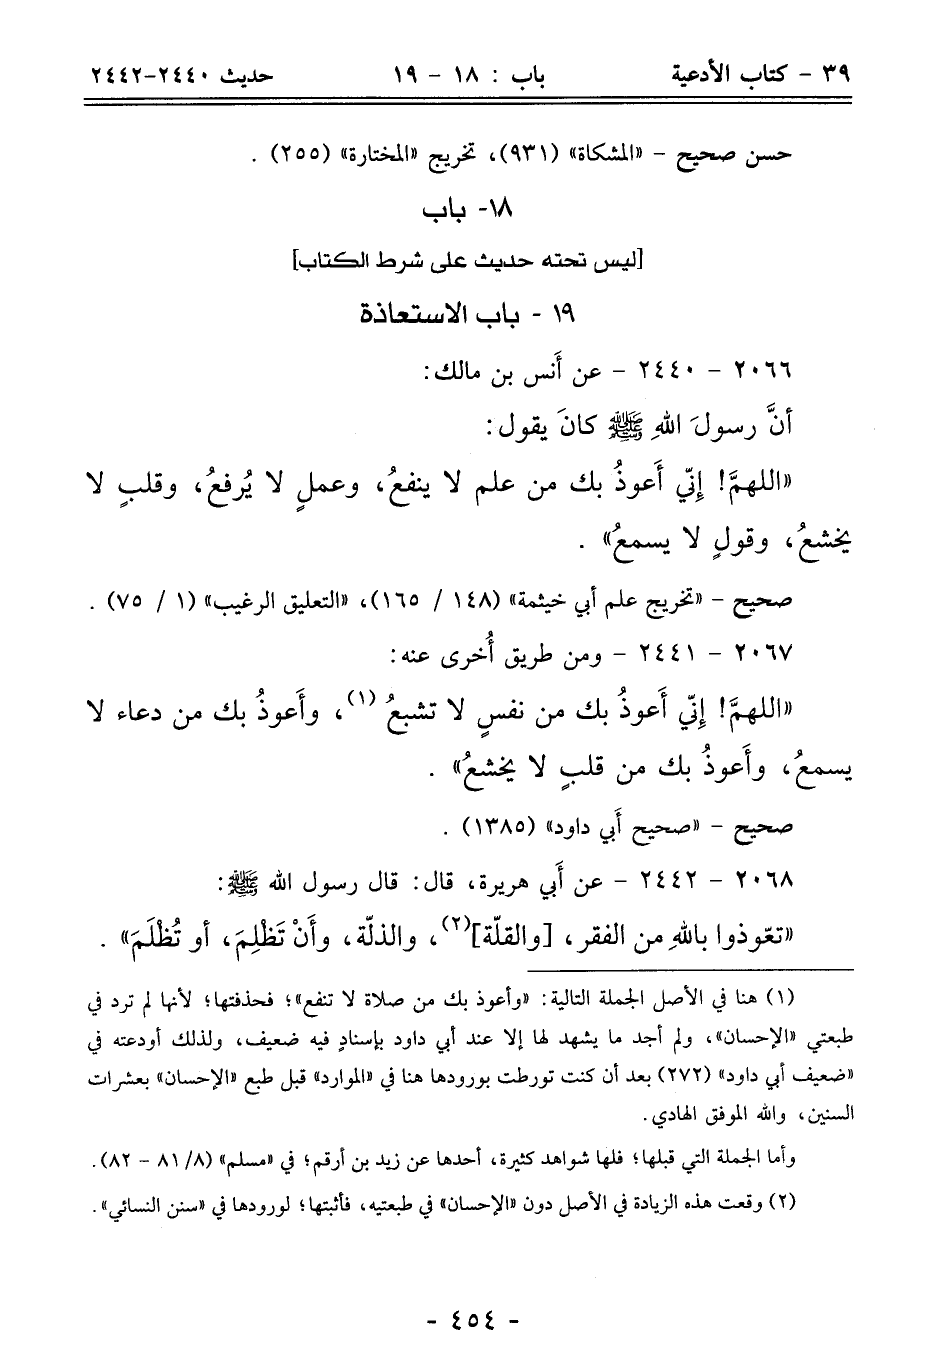 ٣٩ - كتاب الأدعية باب : ١٨ - ١٩ حديث ٢٤٤٠-٢٤٤٢
حسن صحيح - «المشكاة» (٩٣١)، تخريج «المختارة» (٢٥٥) .
١٨- باب
[ليس تحته حديث على شرط الكتاب]
١٩ - باب الاستعاذة
٢٠٦٦ - ٢٤٤٠ - عن أَنس بن مالك:
أنَّ رسولَ اللهِ ﷺ كانَ يقول:
«اللهمَّ! إنّي أَعوذُ بك من علم لا ينفعُ، وعملٍ لا يُرفعُ، وقلبٍ لا
يخشعُ، وقولٍ لا يسمعُ» .
صحيح - «تخريج علم أبي خيثمة» (١٤٨ / ١٦٥)، «التعليق الرغيب» (١ / ٧٥) .
٢٠٦٧ - ٢٤٤١ - ومن طريق أُخرى عنه:
«اللهمَّ! إنّي أَعوذُ بك من نفسٍ لا تشبعُ (١)، وأَعوذُ بك من دعاء لا
يسمعُ، وأَعوذُ بك من قلبٍ لا يخشعُ» .
صحيح - «صحيح أَبي داود» (١٣٨٥) .
٢٠٦٨ - ٢٤٤٢ - عن أَبي هريرة، قال: قال رسول الله ﷺ:
«تعّوذوا باللهِ من الفقر، [والقلّة](٢)، والذلّة، وأَنْ تَظْلِمَ، أو تُظْلَمَ» .
(١) هنا في الأصل الجملة التالية: «وأعوذ بك من صلاة لا تنفع»؛ فحذفتها؛ لأنها لم ترد في
طبعتي «الإحسان»، ولم أجد ما يشهد لها إلا عند أبي داود بإسنادٍ فيه ضعيف، ولذلك أودعته في
«ضعيف أبي داود» (٢٧٢) بعد أن كنت تورطت بورودها هنا في «الموارد» قبل طبع «الإحسان» بعشرات
السنين، والله الموفق الهادي.
وأما الجملة التي قبلها؛ فلها شواهد كثيرة، أحدها عن زيد بن أرقم؛ في «مسلم» (٨/ ٨١ - ٨٢).
(٢) وقعت هذه الزيادة في الأصل دون «الإحسان» في طبعتيه، فأثبتها؛ لورودها في «سنن النسائي».
- ٤٥٤ -